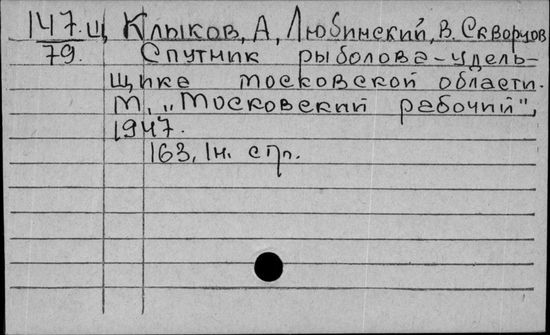 147.Ц Клыков, А, Любинский, В. Скворцов
79. Спутник рыболова-удель-
щика московской области.
М, „Московский рабочий",
1947.
163, 1н. стр.